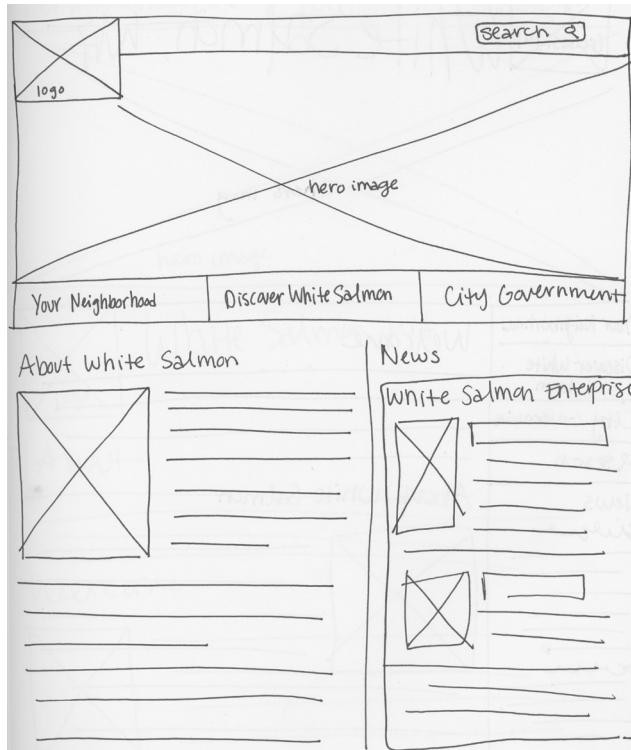 search
logo
hero image
Your Neighborhood
Discover White Salmon
City Government
About White Salmon
News
White Salmon Enterprise